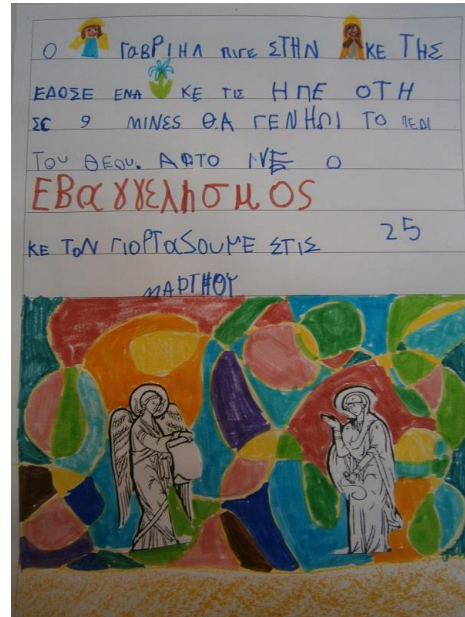 Ο ΓαΒΡΙΗΛ ΠΙΓΕ ΣΤΗΝ ΚΕ ΤΗΣ
ΕΔΟΣΕ ΕΝΑ ΚΕ ΤΙΣ ΗΠΕ ΟΤΗ
ΣΕ 9 ΜΙΝΕΣ ΘΑ ΓΕΝΗΘΙ ΤΟ ΠΕΔΙ
Του ΘΕου. ΑΦΤΟ ΙΝΕ Ο
ΕΒαγγελησμος
ΚΕ ΤοΝ ΓΙΟΡΤαΣΟυΜΕ ΣΤΙΣ 25
ΜΑΡΤΗΟΥ